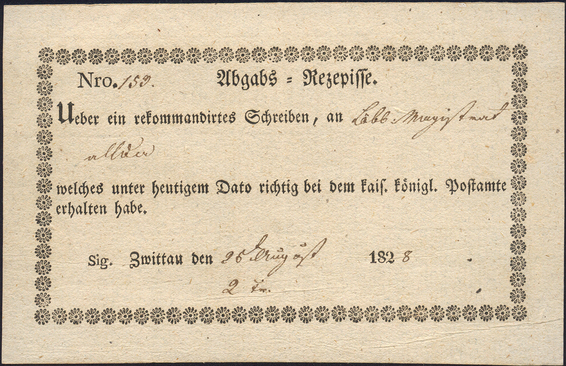 Nro. 159. Abgabs = Rezepisse.
Ueber ein rekommandirtes Schreiben, an Löbl. Magistrat
welches unter heutigem Dato richtig bei dem kais. königl. Postamte
erhalten habe.
Sig. Zwittau den 25 August 1828
2 xr.